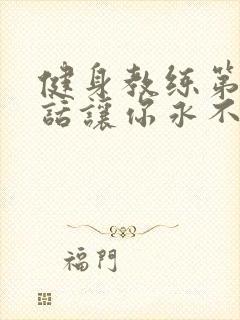 健身教练第
話讓你永不
福門